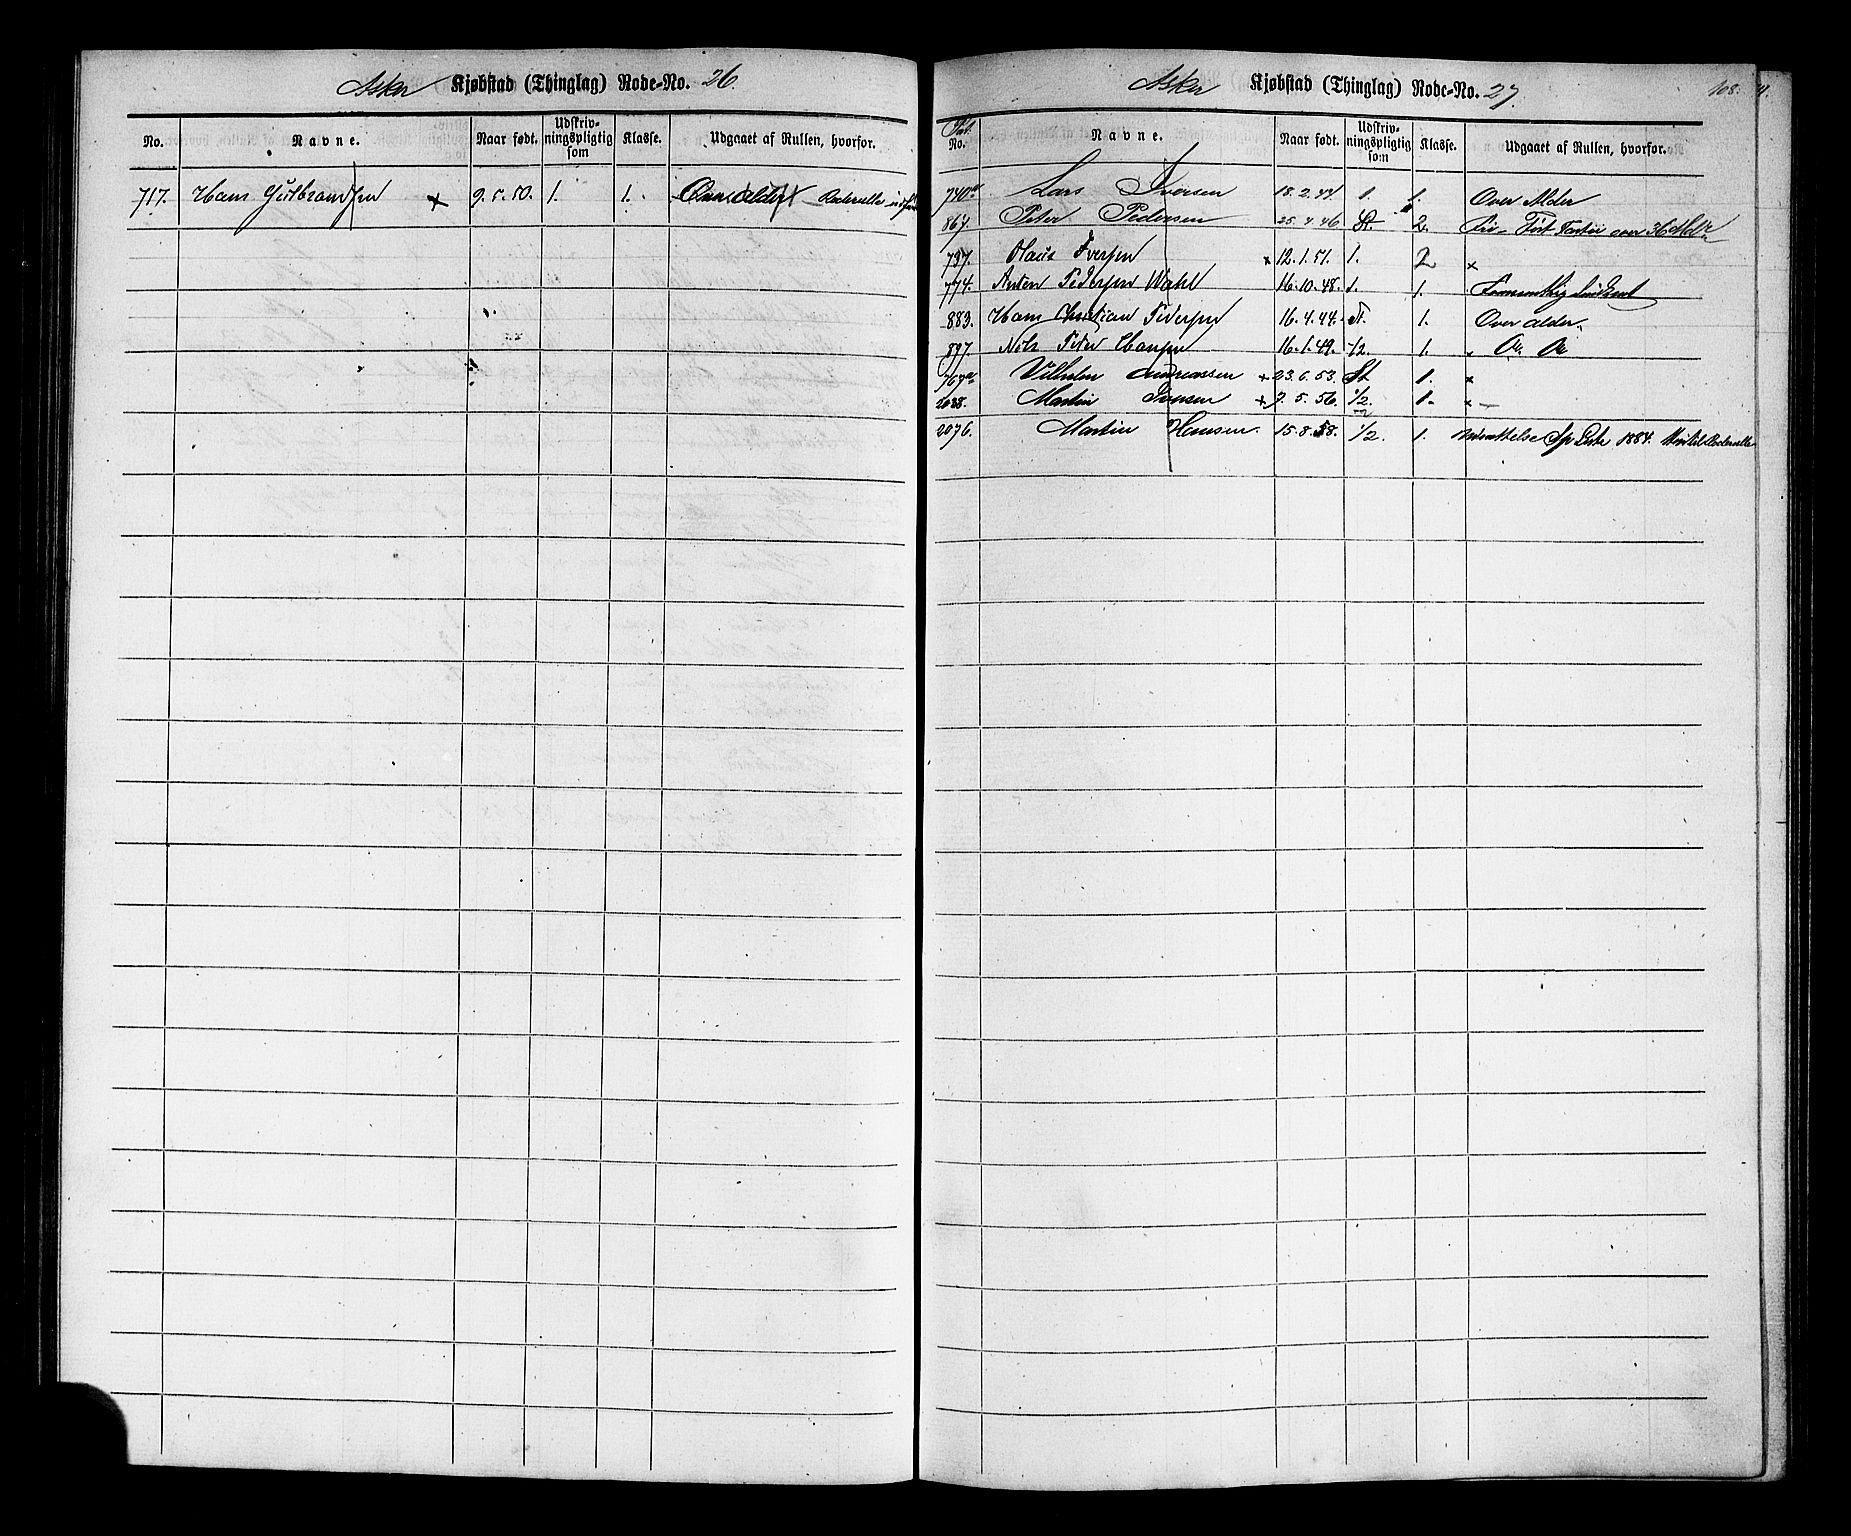 Asker Kjøbstad (Thinglag) Rode-No. 26.
No. Navne. Naar født. Udskriv-ningspligtig som Klasse. Udgaaet af Rullen, hvorfor.
717. Hans Gulbrandsen × 9.5.50. 1. 1. Over alder
Asker Kjøbstad (Thinglag) Rode-No. 27. 108.
No. Navne. Naar født. Udskriv-ningspligtig som Klasse. Udgaaet af Rullen, hvorfor.
740a Lars Iversen 18.2.44 1. 1. Over Alder
867. Peter Pedersen 25.4.46 St. 2. over 36
737. Olaus Iversen × 12.1.51. 1. 2 ×
774. Anton Pedersen Wahl 16.10.48. 1. 1.
883. Hans Christian Pedersen 16.4.44. St. 1. Over alder.
897. Nels Peter Hansen 16.1.49. 1/2. 1.
767a Vilhelm Andreassen × 23.6.53. St 1. ×
2038. Martin × 9.5.56. 1/2. 1. ×
2076. Martin Hansen. 15.8.58. 1/2. 1. 1884.